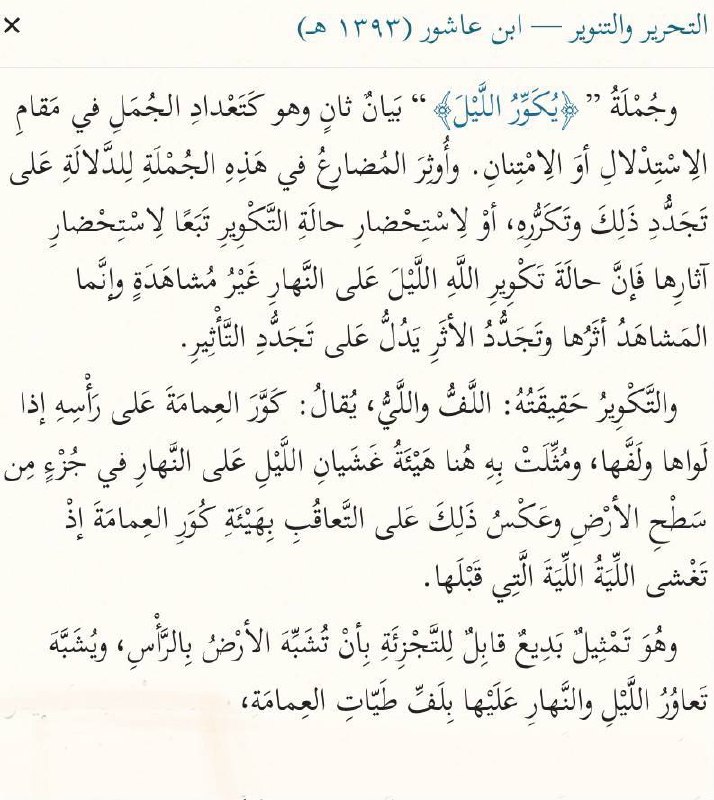 التحرير والتنوير — ابن عاشور (١٣٩٣ هـ) ×
وجُمْلَةُ ” ﴿يُكَوِّرُ اللَّيْلَ﴾ “ بَيانٌ ثانٍ وهو كَتَعْدادِ الجُمَلِ في مَقامِ
الِاسْتِدْلالِ أوَ الِامْتِنانِ. وأُوثِرَ المُضارِعُ في هَذِهِ الجُمْلَةِ لِلدَّلالَةِ عَلى
تَجَدُّدِ ذَلِكَ وتَكَرُّرِهِ، أوْ لِاسْتِحْضارِ حالَةِ التَّكْوِيرِ تَبَعًا لِاسْتِحْضارِ
آثارِها فَإنَّ حالَةَ تَكْوِيرِ اللَّهِ اللَّيْلَ عَلى النَّهارِ غَيْرُ مُشاهَدَةٍ وإنَّما
المَشاهَدُ أثَرُها وتَجَدُّدُ الأثَرِ يَدُلُّ عَلى تَجَدُّدِ التَّأْثِيرِ.
والتَّكْوِيرُ حَقِيقَتُهُ: اللَّفُّ واللَّيُّ، يُقالُ: كَوَّرَ العِمامَةَ عَلى رَأْسِهِ إذا
لَواها ولَفَّها، ومُثِّلَتْ بِهِ هُنا هَيْئَةُ غَشَيانِ اللَّيْلِ عَلى النَّهارِ في جُزْءٍ مِن
سَطْحِ الأرْضِ وعَكْسُ ذَلِكَ عَلى التَّعاقُبِ بِهَيْئَةِ كُوَرِ العِمامَةَ إذْ
تَغْشى اللِّيَةُ اللِّيَةَ الَّتِي قَبْلَها.
وهُوَ تَمْثِيلٌ بَدِيعٌ قابِلٌ لِلتَّجْزِئَةِ بِأنْ تُشَبِّهَ الأرْضُ بِالرَّأْسِ، ويُشَبَّهَ
تَعاوُرُ اللَّيْلِ والنَّهارِ عَلَيْها بِلَفِّ طَيّاتِ العِمامَةِ،